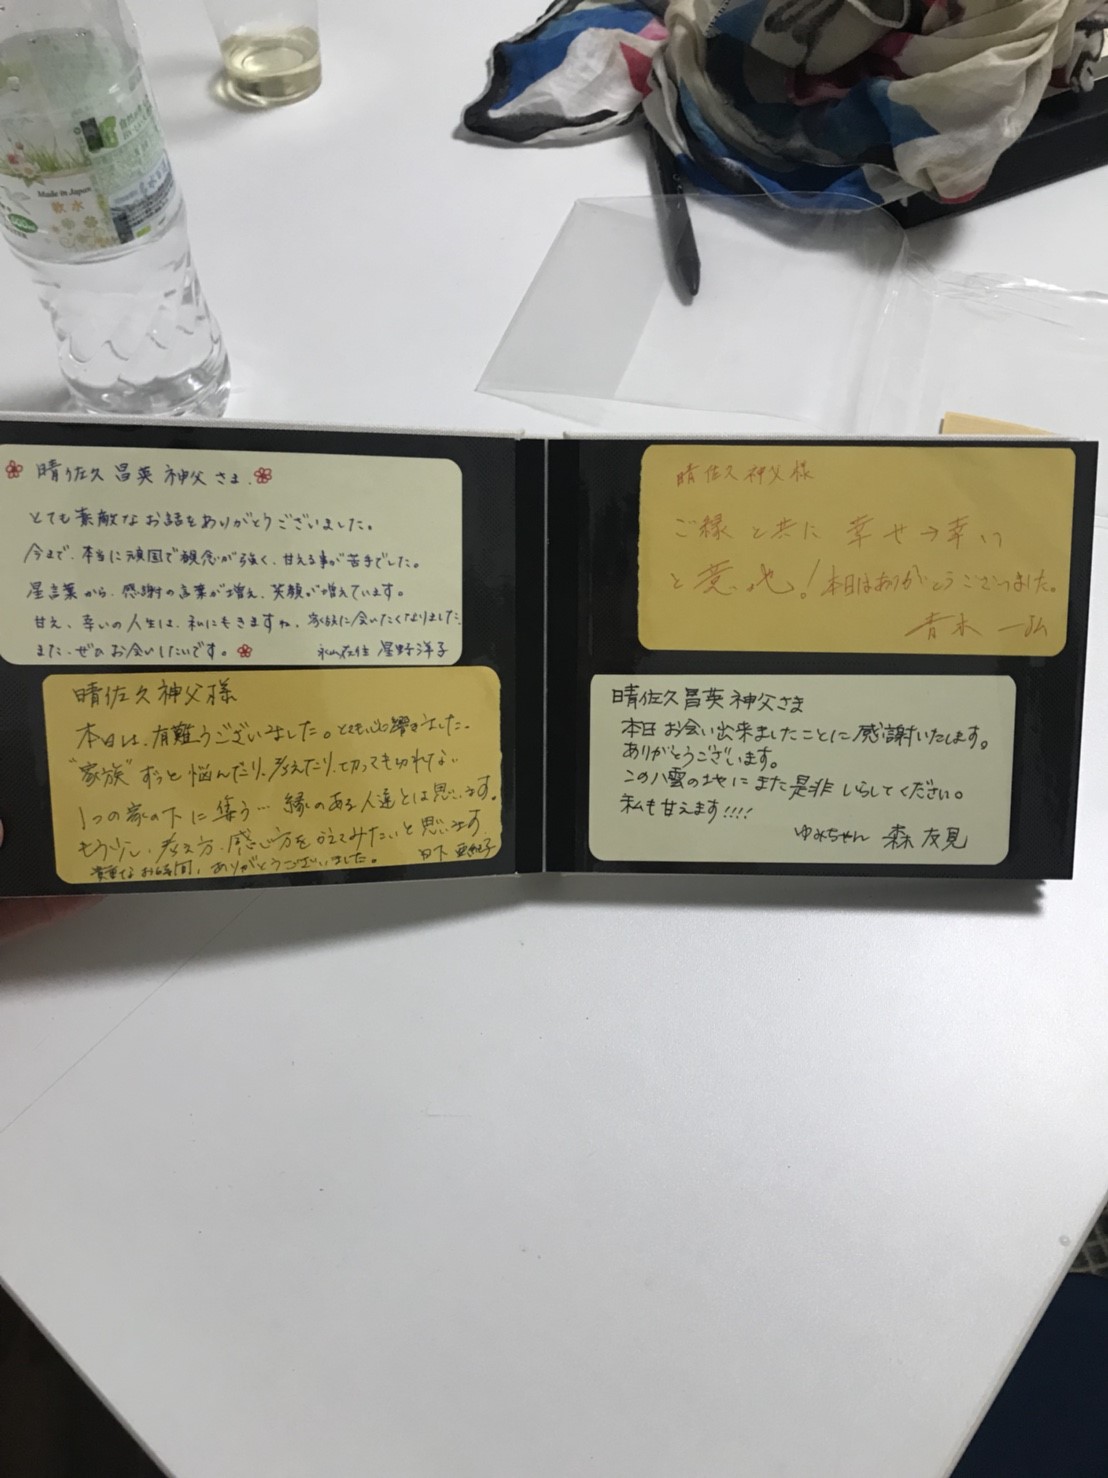 Made in Japan
軟水
晴佐久昌英神父さま
とても素敵なお話をありがとうございました。
今まで、本当に頑固で観念が強く、甘える事が苦手でした。
星言葉から、感謝の言葉が増え、笑顔が増えています。
甘え、幸いの人生は、私にもきますね。家族に会いたくなりました。
また、ぜひお会いしたいです。
在住 星野洋子
晴佐久神父様
本日は、有難うございました。とても心に響きました。
"家族"ずっと悩んだり、考えたり、切っても切れない
1つの家の下に集う…縁のある人達とは思います。
もう少し、考え方、感じ方を変えてみたいと思います
貴重なお時間、ありがとうございました。
日下
晴佐久神父様
ご縁と共に幸せ→幸い
と意 也!本日はありがとうございました。
青木一弘
晴佐久昌英神父さま
本日お会い出来ましたことに感謝いたします。
ありがとうございます。
この八雲の地にまた是非いらしてください。
私も甘えます!!!!
ゆみちゃん 森友見